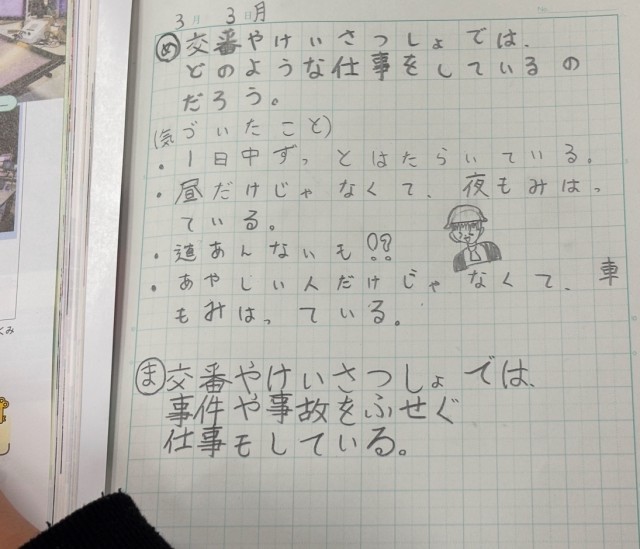 3月 3日 月
め 交番やけいさつしょでは、
どのような仕事をしているの
だろう。
(気づいたこと)
・1日中ずっとはたらいている。
・昼だけじゃなくて、夜もみはっ
ている。
・道あんないも!?
・あやしい人だけじゃなくて、車
もみはっている。
ま 交番やけいさつしょでは、
事件や事故をふせぐ
仕事もしている。
くみ